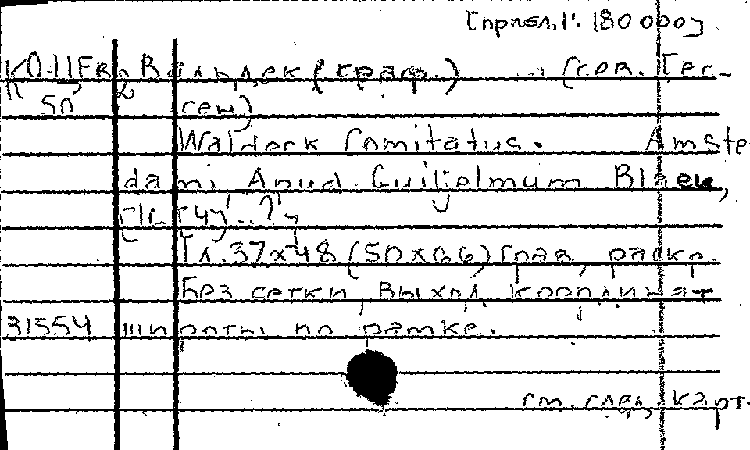 [прибл. 1: 180 000].
Вальдек (граф.) (сов. Гес-
50 сен)
Waldeck Comitatus. Amste
dami, Apud Guiljelmum Blaeu,
Гл. 37x48 (50x66) грав, раскр.
Без сетки, выход координат
31554 широты по рамке.
см. след, карт.